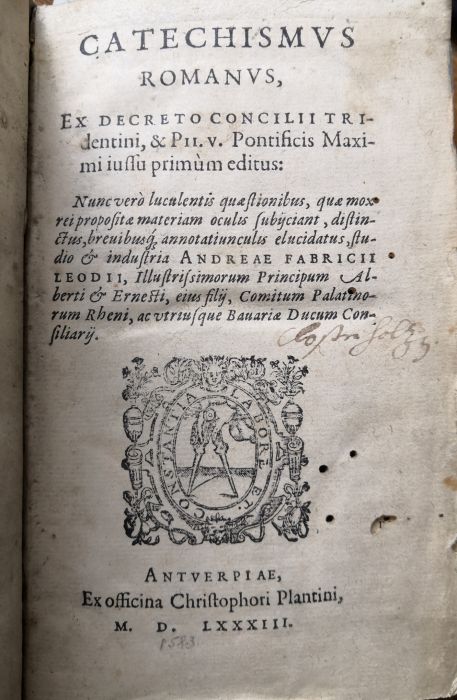 CATECHISMVS
ROMANVS,
EX DECRETO CONCILII TRI-
dentini, & PII. V. Pontificis Maxi-
mi iussu primùm editus:
Nunc verò luculentis quæstionibus, quæ mox
rei propositæ materiam oculis subijciant, distin-
ctus, breuibusq́; annotatiunculis elucidatus, stu-
dio & industria ANDREAE FABRICII
LEODII, Illustrissimorum Principum Al-
berti & Ernesti, eius filij, Comitum Palatino-
rum Rheni, ac vtriusque Bauariæ Ducum Con-
siliarij.
CONSTANTIA LABORE ET
ANTVERPIAE,
Ex officina Christophori Plantini,
M. D. LXXXIII.
1583